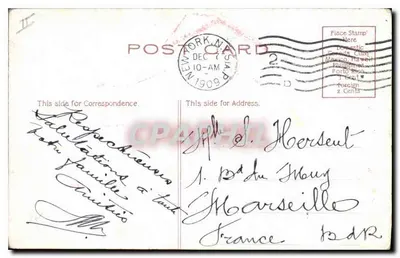 POST CARD
NEW YORK, N.Y. STA. P
DEC 7
10-AM
1909
2
Place Stamp
Here
Domestic
Foreign
2 Cents
This side for Correspondence.
This side for Address.
Respectueuses
salutations à toute
votre famille
Amitiés
Mlle S. Herseut
1. Bd du Muy
Marseille
France
BdR